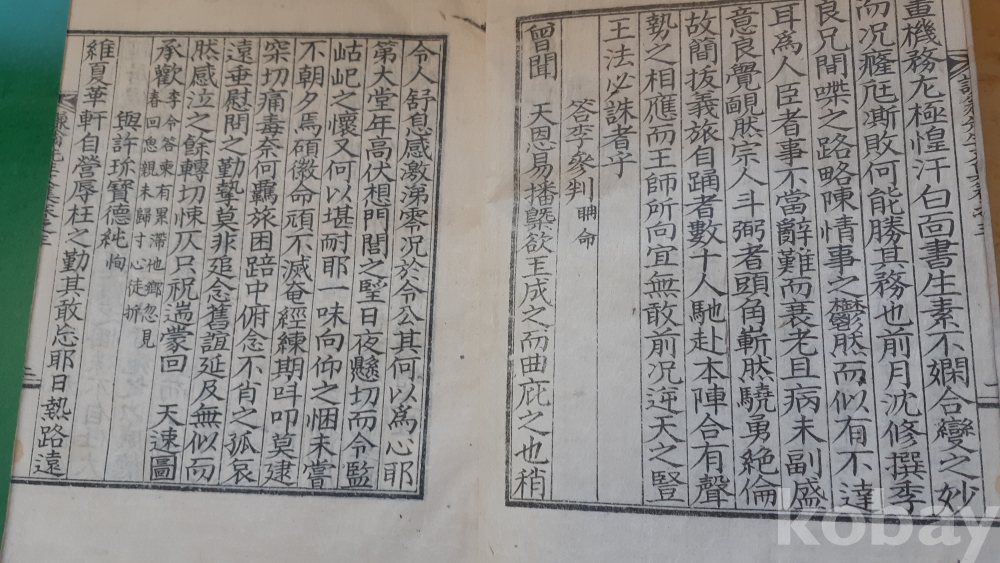 畫機務尤極惶汗白面書生素不嫺合變之妙
而况癃尫澌敗何能勝其務也前月沈修撰季
良兄間㗫之路略陳情事之欝然而似有不達
耳爲人臣者事不當辭難而衰老且病未副盛
意良覺靦然宗人斗弼者頭角嶄然驍勇絶倫
故簡拔義旅自踊者數十人馳赴本陣合有聲
勢之相應而王師所向宜無敢前况逆天之竪
王法必誅者乎
答李參判 聃命
曾聞 天恩易播槩欲玉成之而曲庇之也稍
令人舒息感激涕零况於令公其何以爲心耶
第大堂年高伏想門閭之望日夜懸切而令監
岵屺之懷又何以堪耐耶一味向仰之悃未嘗
不朝夕焉碩徽命頑不滅奄經練期叫叩莫逮
穾切痛毒奈何羈旅困踣中俯念不肖之孤哀
遠垂慰問之勤摯莫非追念舊誼延及無似而
然感泣之餘轉切悚仄只祝湍蒙回 天速圖
承歡 李令答柬有累滯他鄉忽見春回思親未歸寸心徒折
與許珎寶德純恂
維夏華軒自營辱枉之勤其敢忘耶日熱路遠
kobay